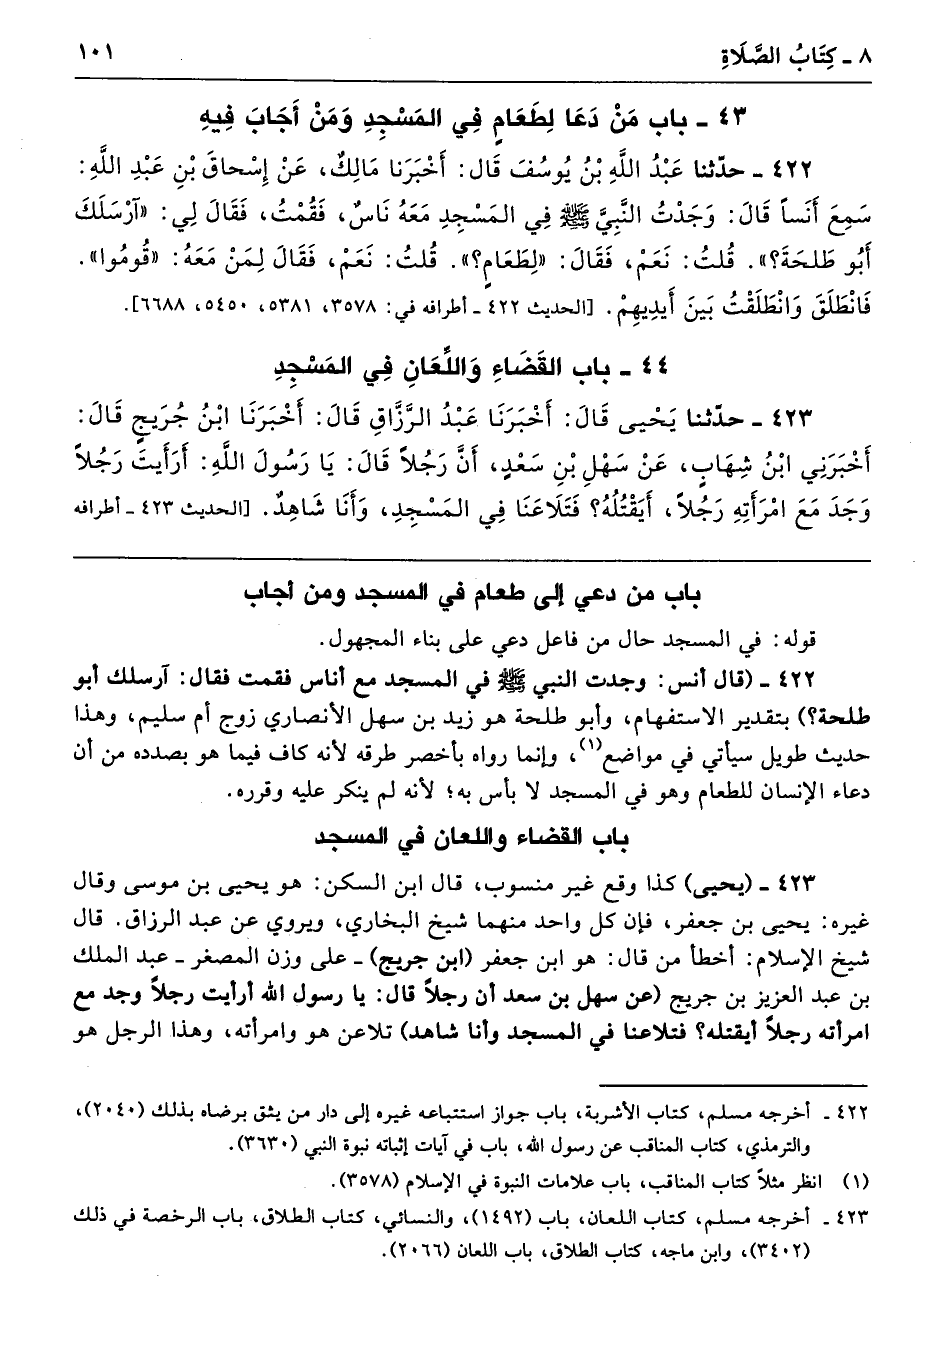 ٨ ـ كِتَابُ الصَّلَاةِ
١٠١
٤٣ ـ باب مَنْ دَعَا لِطَعَامٍ فِي المَسْجِدِ وَمَنْ أَجَابَ فِيهِ
٤٢٢ ـ حدّثنا عَبْدُ اللَّهِ بْنُ يُوسُفَ قَال: أَخْبَرَنا مَالِكٌ، عَنْ إِسْحاقَ بْنِ عَبْدِ اللَّهِ:
سَمِعَ أَنَساً قَالَ: وَجَدْتُ النَّبِيَّ ﷺ فِي المَسْجِدِ مَعَهُ نَاسٌ، فَقُمْتُ، فَقَالَ لِي: «آرْسَلَكَ
أَبُو طَلحَةَ؟». قُلتُ: نَعَمْ، فَقَالَ: «لِطَعَامٍ؟». قُلتُ: نَعَمْ، فَقَالَ لِمَنْ مَعَهُ: «قُومُوا».
فَانْطَلَقَ وَانْطَلَقْتُ بَينَ أَيدِيهِمْ. [الحديث ٤٢٢ ـ أطرافه في: ٣٥٧٨، ٥٣٨١، ٥٤٥٠، ٦٦٨٨].
٤٤ ـ باب القَضَاءِ وَاللِّعَانِ فِي المَسْجِدِ
٤٢٣ ـ حدّثنا يَحْيى قَالَ: أَخْبَرَنَا عَبْدُ الرَّزَّاقِ قَالَ: أَخْبَرَنَا ابْنُ جُرَيجٍ قَالَ:
أَخْبَرَنِي ابْنُ شِهَابٍ، عَنْ سَهْلِ بْنِ سَعْدٍ، أَنَّ رَجُلاً قَالَ: يَا رَسُولَ اللَّهِ: أَرَأَيتَ رَجُلاً
وَجَدَ مَعَ امْرَأَتِهِ رَجُلاً، أَيَقْتُلُهُ؟ فَتَلَاعَنَا فِي المَسْجِدِ، وَأَنَا شَاهِدٌ. [الحديث ٤٢٣ ـ أطرافه
باب من دعي إلى طعام في المسجد ومن أجاب
قوله: في المسجد حال من فاعل دعي على بناء المجهول.
٤٢٢ ـ (قال أنس: وجدت النبي ﷺ في المسجد مع أناس فقمت فقال: آرسلك أبو
طلحة؟) بتقدير الاستفهام، وأبو طلحة هو زيد بن سهل الأنصاري زوج أم سليم، وهذا
حديث طويل سيأتي في مواضع(١)، وإنما رواه بأخصر طرقه لأنه كاف فيما هو بصدده من أن
دعاء الإنسان للطعام وهو في المسجد لا بأس به؛ لأنه لم ينكر عليه وقرره.
باب القضاء واللعان في المسجد
٤٢٣ ـ (يحيى) كذا وقع غير منسوب، قال ابن السكن: هو يحيى بن موسى وقال
غيره: يحيى بن جعفر، فإن كل واحد منهما شيخ البخاري، ويروي عن عبد الرزاق. قال
شيخ الإسلام: أخطأ من قال: هو ابن جعفر (ابن جريج) ـ على وزن المصغر ـ عبد الملك
بن عبد العزيز بن جريج (عن سهل بن سعد أن رجلاً قال: يا رسول الله أرأيت رجلاً وجد مع
امرأته رجلاً أيقتله؟ فتلاعنا في المسجد وأنا شاهد) تلاعن هو وامرأته، وهذا الرجل هو
٤٢٢ ـ أخرجه مسلم، كتاب الأشربة، باب جواز استتباعه غيره إلى دار من يثق برضاه بذلك (٢٠٤٠)،
والترمذي، كتاب المناقب عن رسول الله، باب في آيات إثباته نبوة النبي (٣٦٣٠).
(١) انظر مثلاً كتاب المناقب، باب علامات النبوة في الإسلام (٣٥٧٨).
٤٢٣ ـ أخرجه مسلم، كتاب اللعان، باب (١٤٩٢)، والنسائي، كتاب الطلاق، باب الرخصة في ذلك
(٣٤٠٢)، وابن ماجه، كتاب الطلاق، باب اللعان (٢٠٦٦).